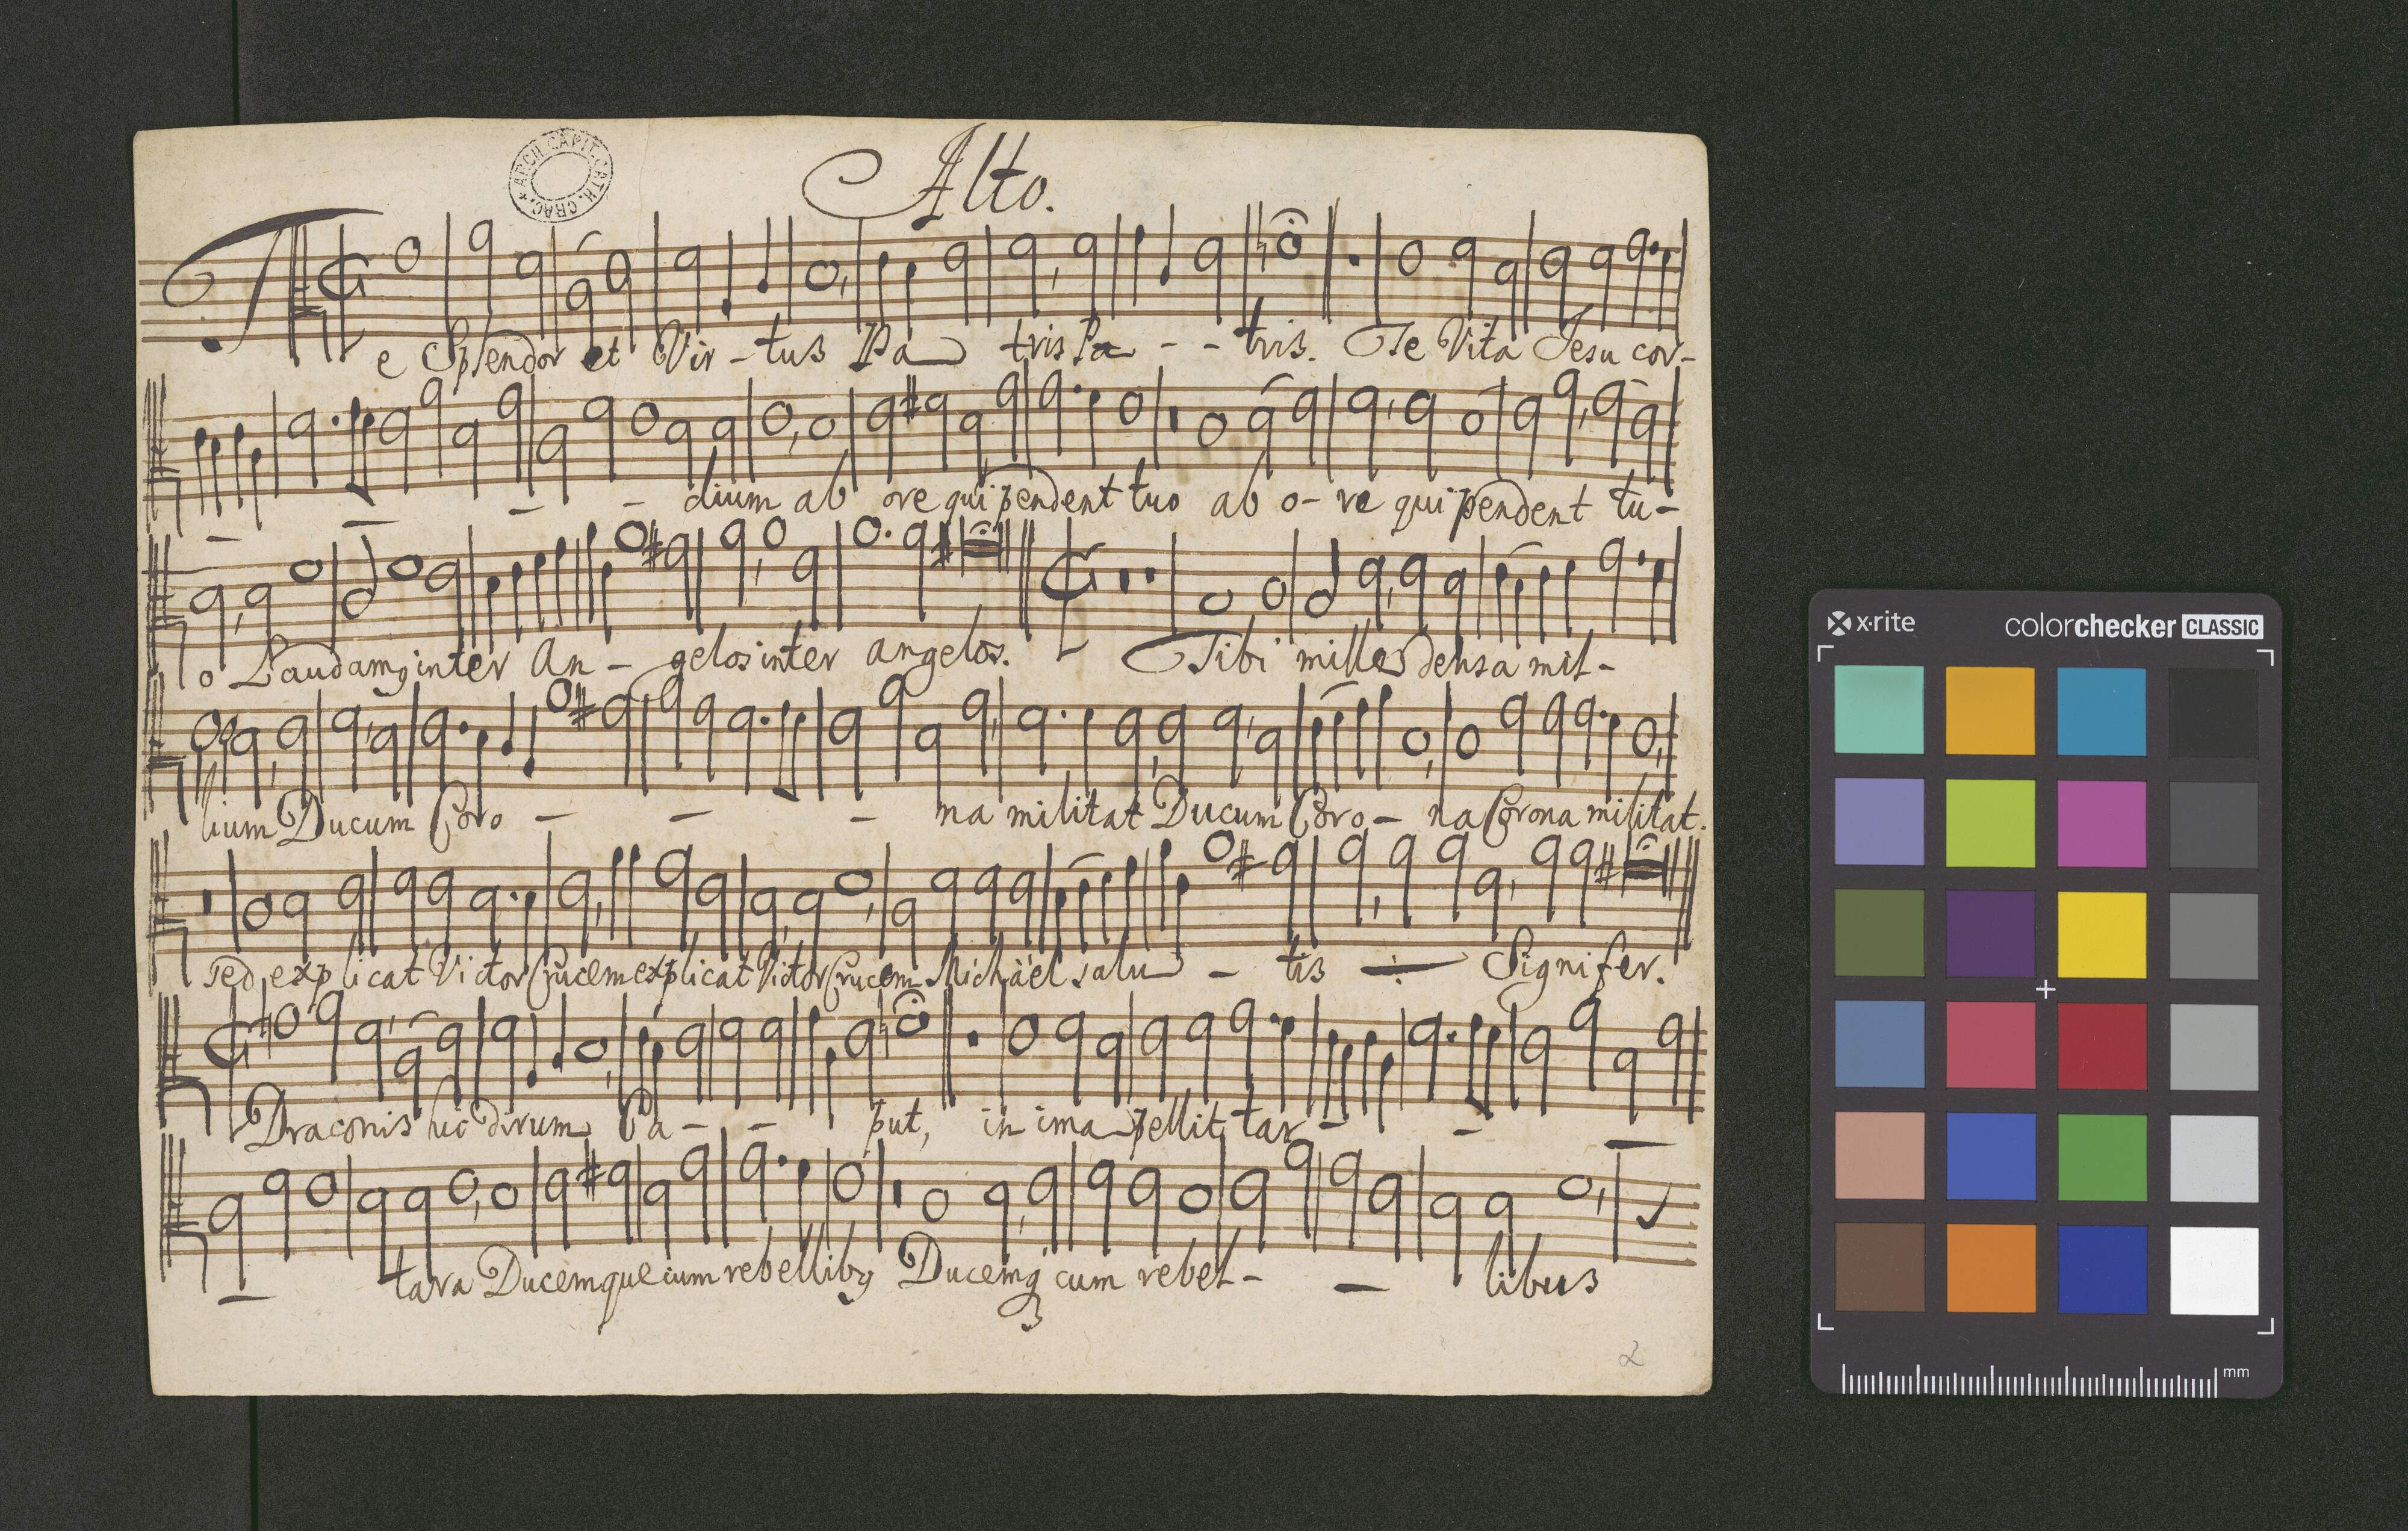 Alto.
ARCH. CAPIT. CATH. CRAC.
Te Splendor et Vir - tus Pa tris Pa - - tris. Te Vita Jesu cor-
- - - - dium ab ore qui pendent tuo ab o- re qui pendent tu-
o Laudamq inter An - gelos inter angelos. Tibi mille densa mil-
lium Ducum Coro - - - na militat Ducum Coro- na Corona militat.
sed explicat Victor Crucem explicat Victor Crucem Michäel salu - tis Signifer.
Draconis hic dirum Ca - - put, in ima pellit tar - - -
- tara Ducemque cum rebellibq Ducemq cum rebel- - libus
3
2
x·rite
colorchecker CLASSIC
mm